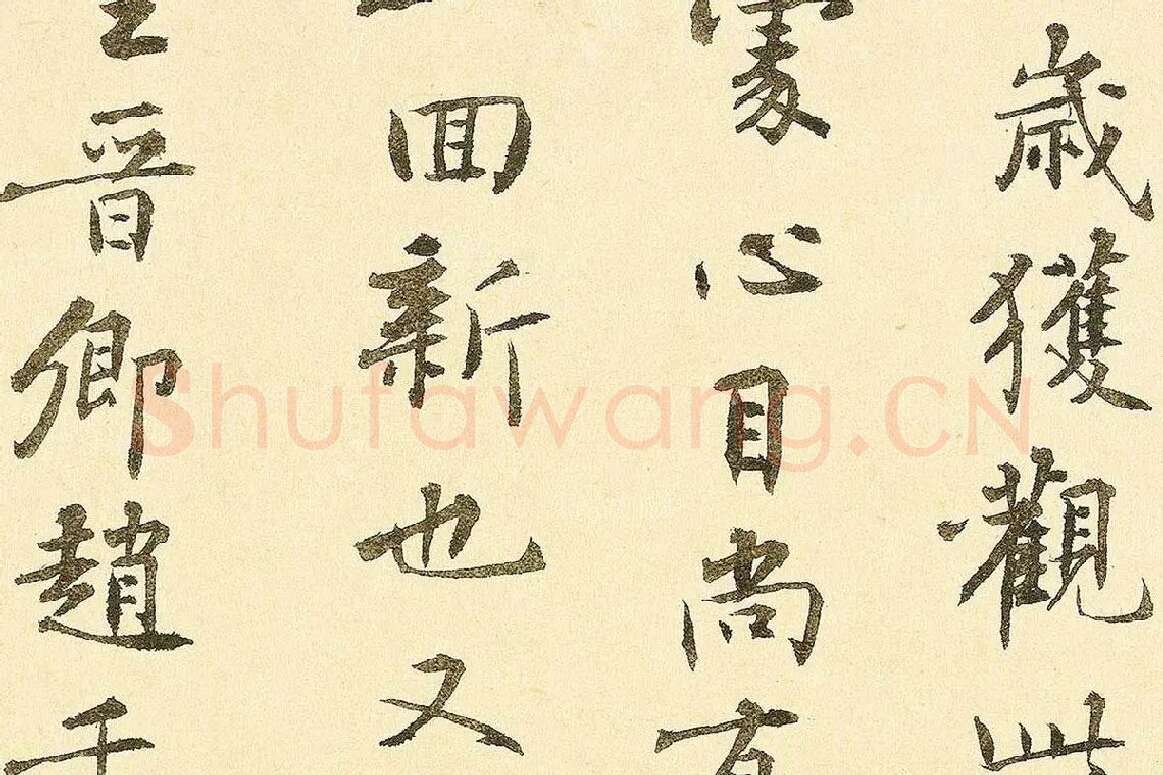 歲獲觀此
蒙心目尚有
面新也又
王晉卿趙千
Shufawang.CN